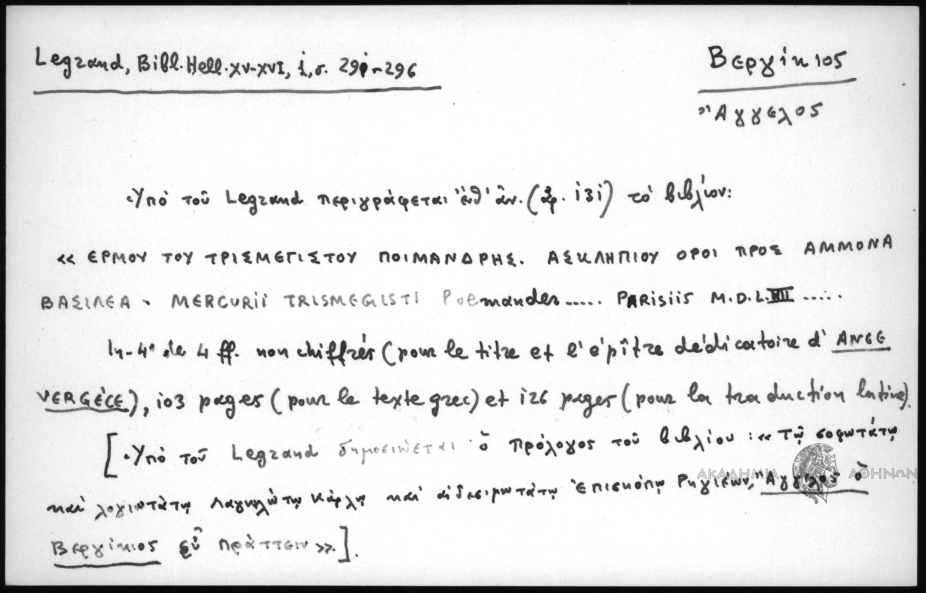 Legrand, Bibl. Hell. XV-XVI, i, σ. 291-296
Βεργίκιος
Ἄγγελος
Ὑπό τοῦ Legrand περιγράφεται ἐνθ' ἀν. (ἀρ. 131) τό βιβλίον:
« ΕΡΜΟΥ ΤΟΥ ΤΡΙΣΜΕΓΙΣΤΟΥ ΠΟΙΜΑΝΔΡΗΣ. ΑΣΚΛΗΠΙΟΥ ΟΡΟΙ ΠΡΟΣ ΑΜΜΟΝΑ
ΒΑΣΙΛΕΑ - MERCURII TRISMEGISTI Poemander..... PARISIIS M.D.L.IIII .....
In-4º de 4 ff. non chiffrés (pour le titre et l'épître dédicatoire d'ANGE
VERGÈCE), 103 pages (pour le texte grec) et 126 pages (pour la traduction latine).
[Ὑπό τοῦ Legrand δημοσιεύεται ὁ πρόλογος τοῦ βιβλίου: « Τῷ σοφωτάτῳ
ΑΚΑΔΗΜΙΑ ΑΘΗΝΩΝ
καί λογιωτάτῳ Λαγκλώτῳ Κάρλῳ καί αἰδεσιμωτάτῳ Ἐπισκόπῳ Ῥηγιέων, Ἄγγελος ὁ
Βεργίκιος εὖ πράττειν »].